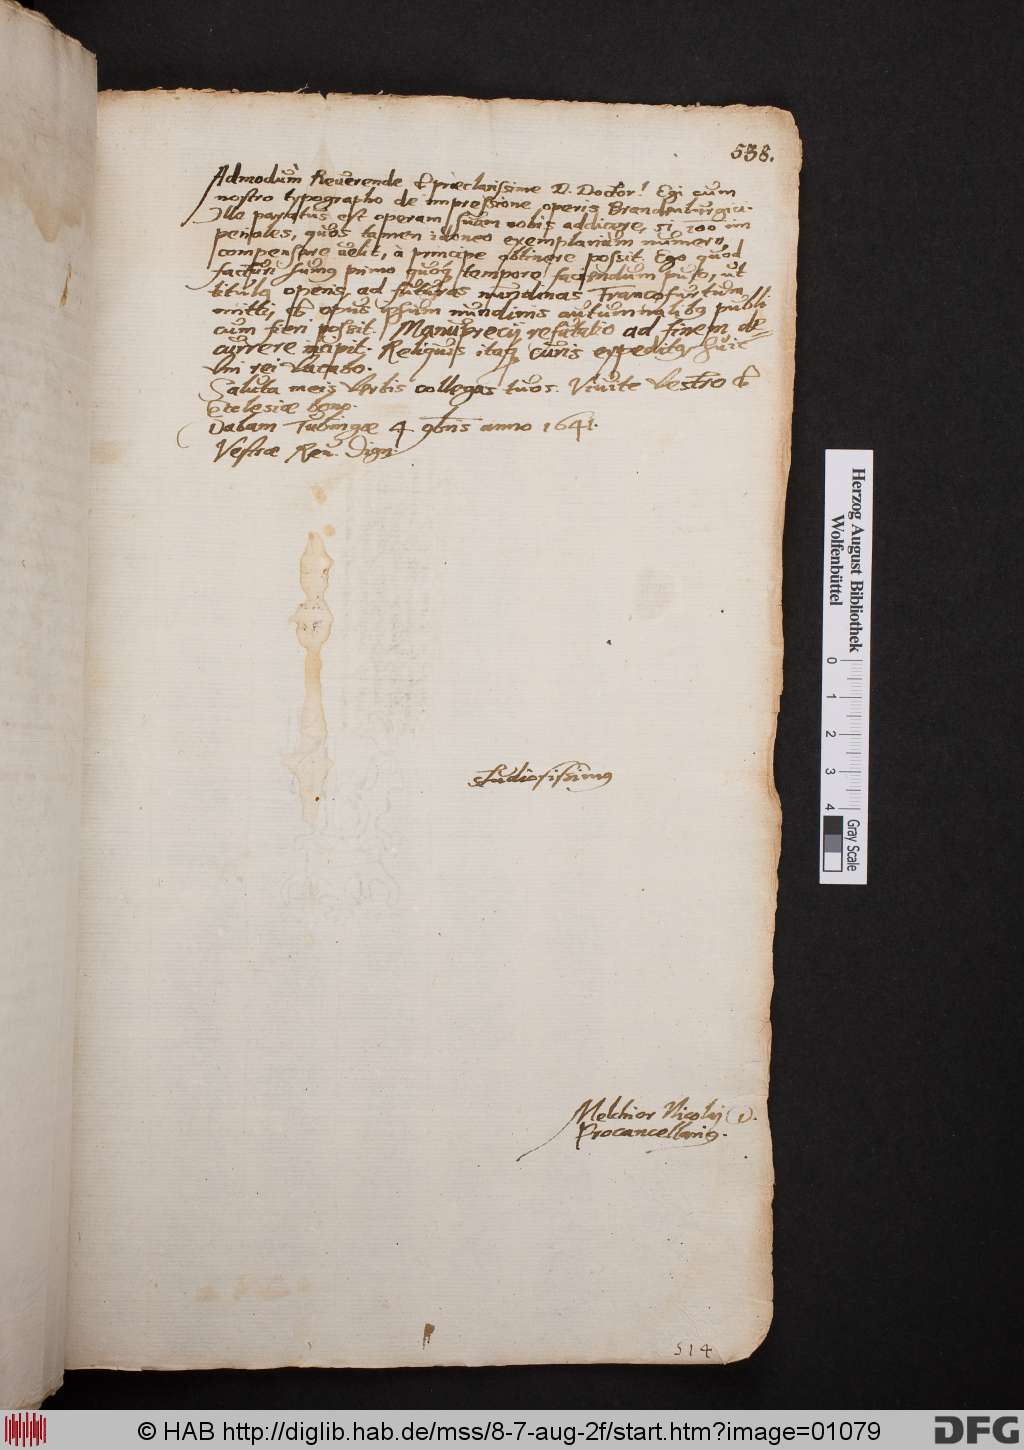 538.
Admodùm Reverende & præclarissime D. Doctor! Egi cum
nostro typographo de impressione operis Brandenburgici.
Ille paratus est operam suam vobis addicere, si 200 im
periales, quos tamen idoneo exemplariùm numero,
compensare velit, à principe obtinere possit. Ego quod
facturi sumus primo quoq tempore faciendum puto, ut
titulus operis, ad futuras nundinas Francofurtum
mitti, & opus ipsum nundinis autumnalibus publi
cum fieri possit. Manuprecij refutatio ad finem de
currere incipit. Reliquis itaq curis expeditus huic
Uni rei vacabo.
Saluta meis verbis collegas tuos. Vivite vestro &
Ecclesiæ bono.
Dabam Tubingæ 4 9bris anno 1641.
Vestræ Rev. Dign.
studiosissimus
Melchior Nicolaj D.
Procancellarius.
514
Herzog August Bibliothek
Wolfenbüttel
0 1 2 3 4
Gray Scale
© HAB http://diglib.hab.de/mss/8-7-aug-2f/start.htm?image=01079
DFG